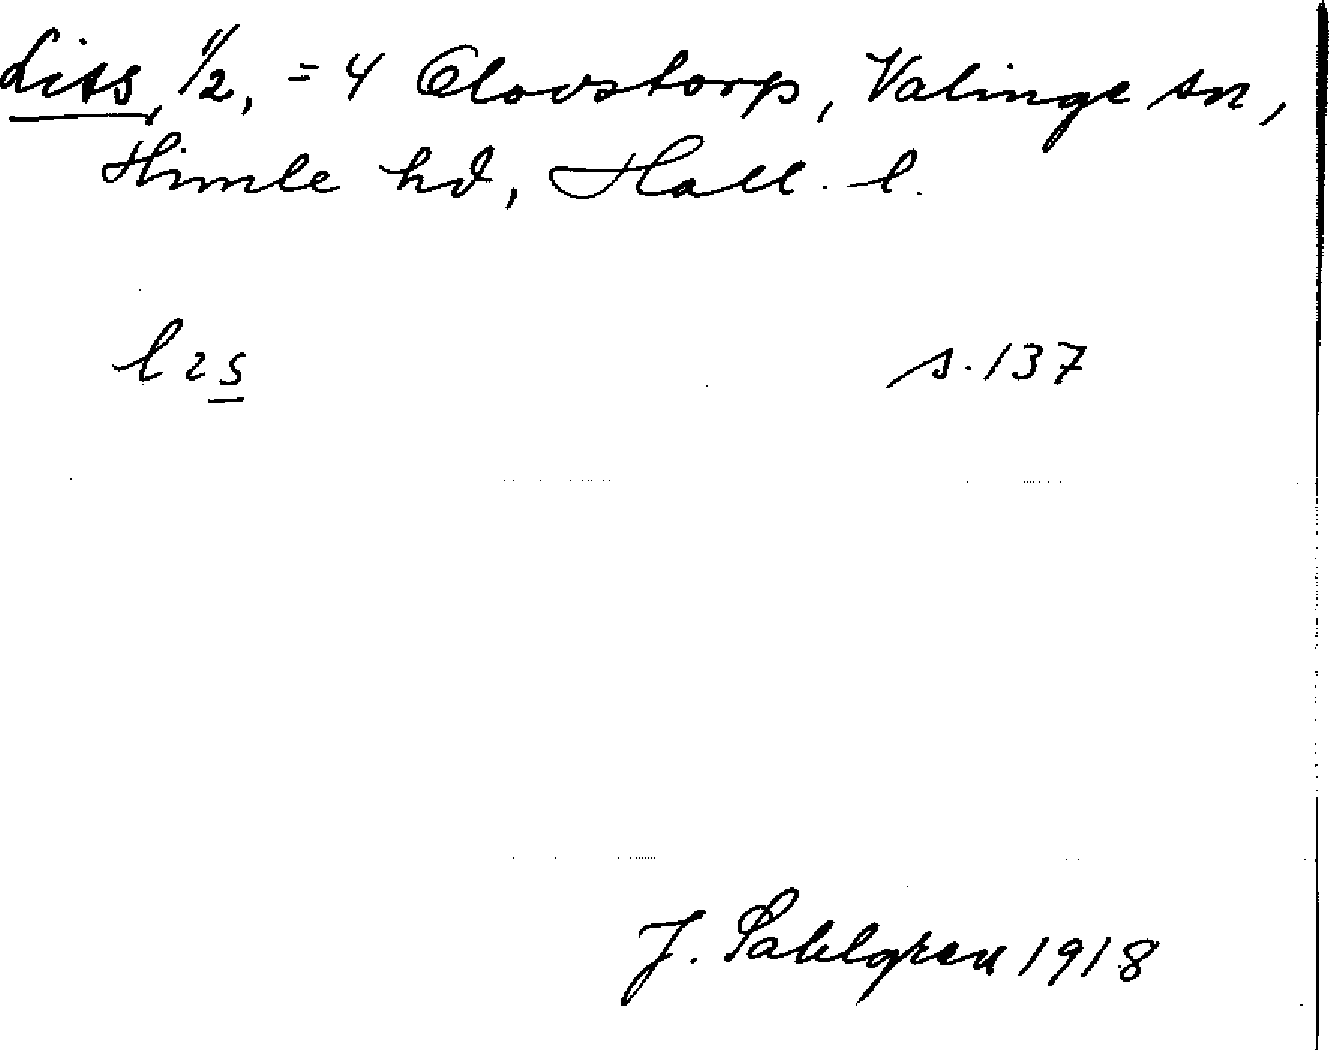 Liss, 1/2, = 4 Olovstorp, Valinge sn,
Himle hd, Hall. l.
lıs s. 137
J. Sahlgren 1918